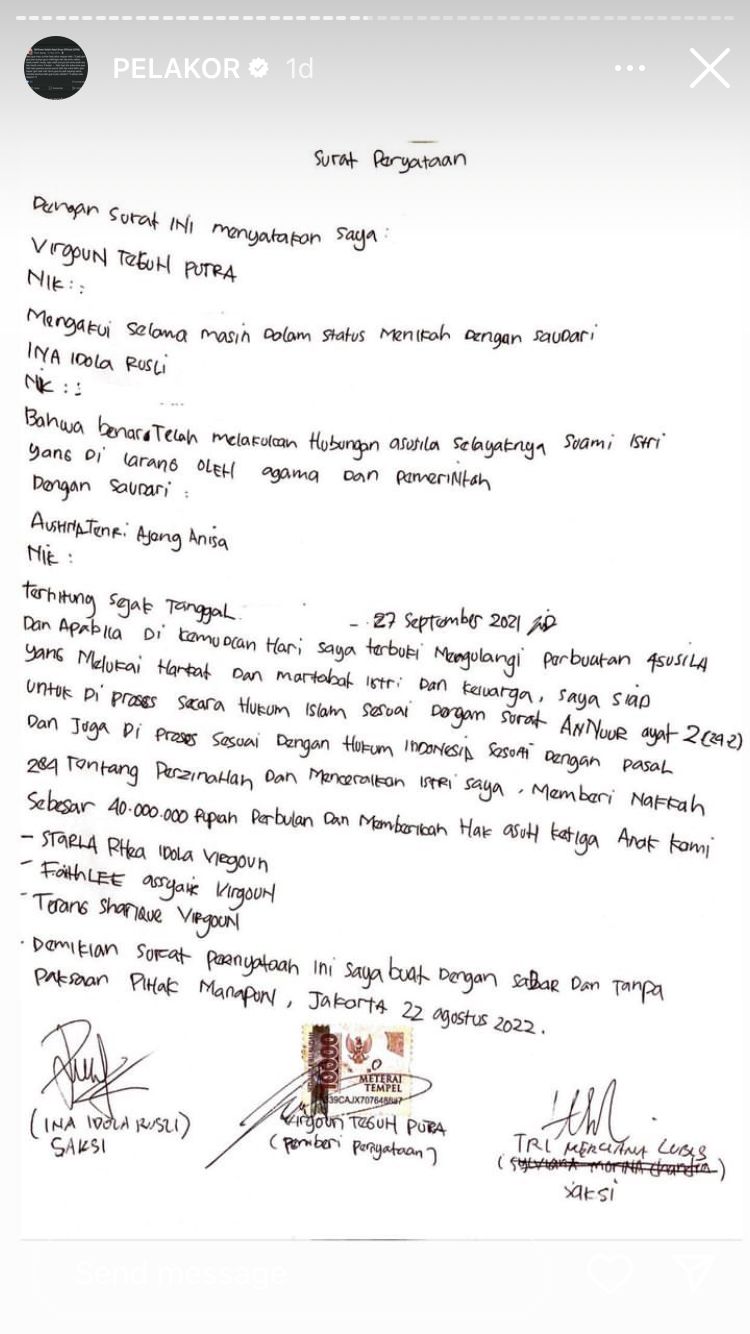 PELAKOR 1d
Surat Peryataan
Dengan Surat INI menyatakan saya :
VIRGOUN TEGUH PUTRA
NIK : :
Mengakui selama masih Dalam status Menikah Dengan saudari
INA IDOLA RUSLI
NIK : :
Bahwa benar Telah melakukan Hubungan asusila selayaknya Suami istri
yang Di larang OLEH agama Dan pemerintah
Dengan Saudari :
Tenri Ajeng Anisa
NIK :
terhitung sejak Tanggal - 27 September 2021
Dan Apabila Di kemudian Hari saya terbukti Mengulangi perbuatan ASUSILA
yang Melukai Harkat Dan martabat Istri Dan keluarga, saya siap
untuk Di proses secara Hukum Islam Sesuai Dengan surat ANNUUR ayat 2 (24:2)
Dan Juga Di proses Sesuai Dengan Hukum INDONESIA Sesuai Dengan pasal
284 Tentang Perzinahan Dan Menceraikan istri saya, Memberi Nafkah
Sebesar 40.000.000 Rupiah Perbulan Dan Memberikan Hak asuh ketiga Anak kami
- STARLA RHea IDOLA VIRGOUN
- FaithLEE assyaik VIRGOUN
- Terang Sharique VIRGOUN
. Demikian surat pernyataan ini saya buat Dengan saDar Dan Tanpa
Paksaan Pihak Manapun, Jakarta 22 agustus 2022.
10000
METERAI
TEMPEL
39CAJX707648687
(INA IDOLA RUSLI) Virgoun TEGUH PUTRA TRI MERCIANA LUBIS
SAKSI (pemberi peryataan) (Sylviana)
saksi
Send message